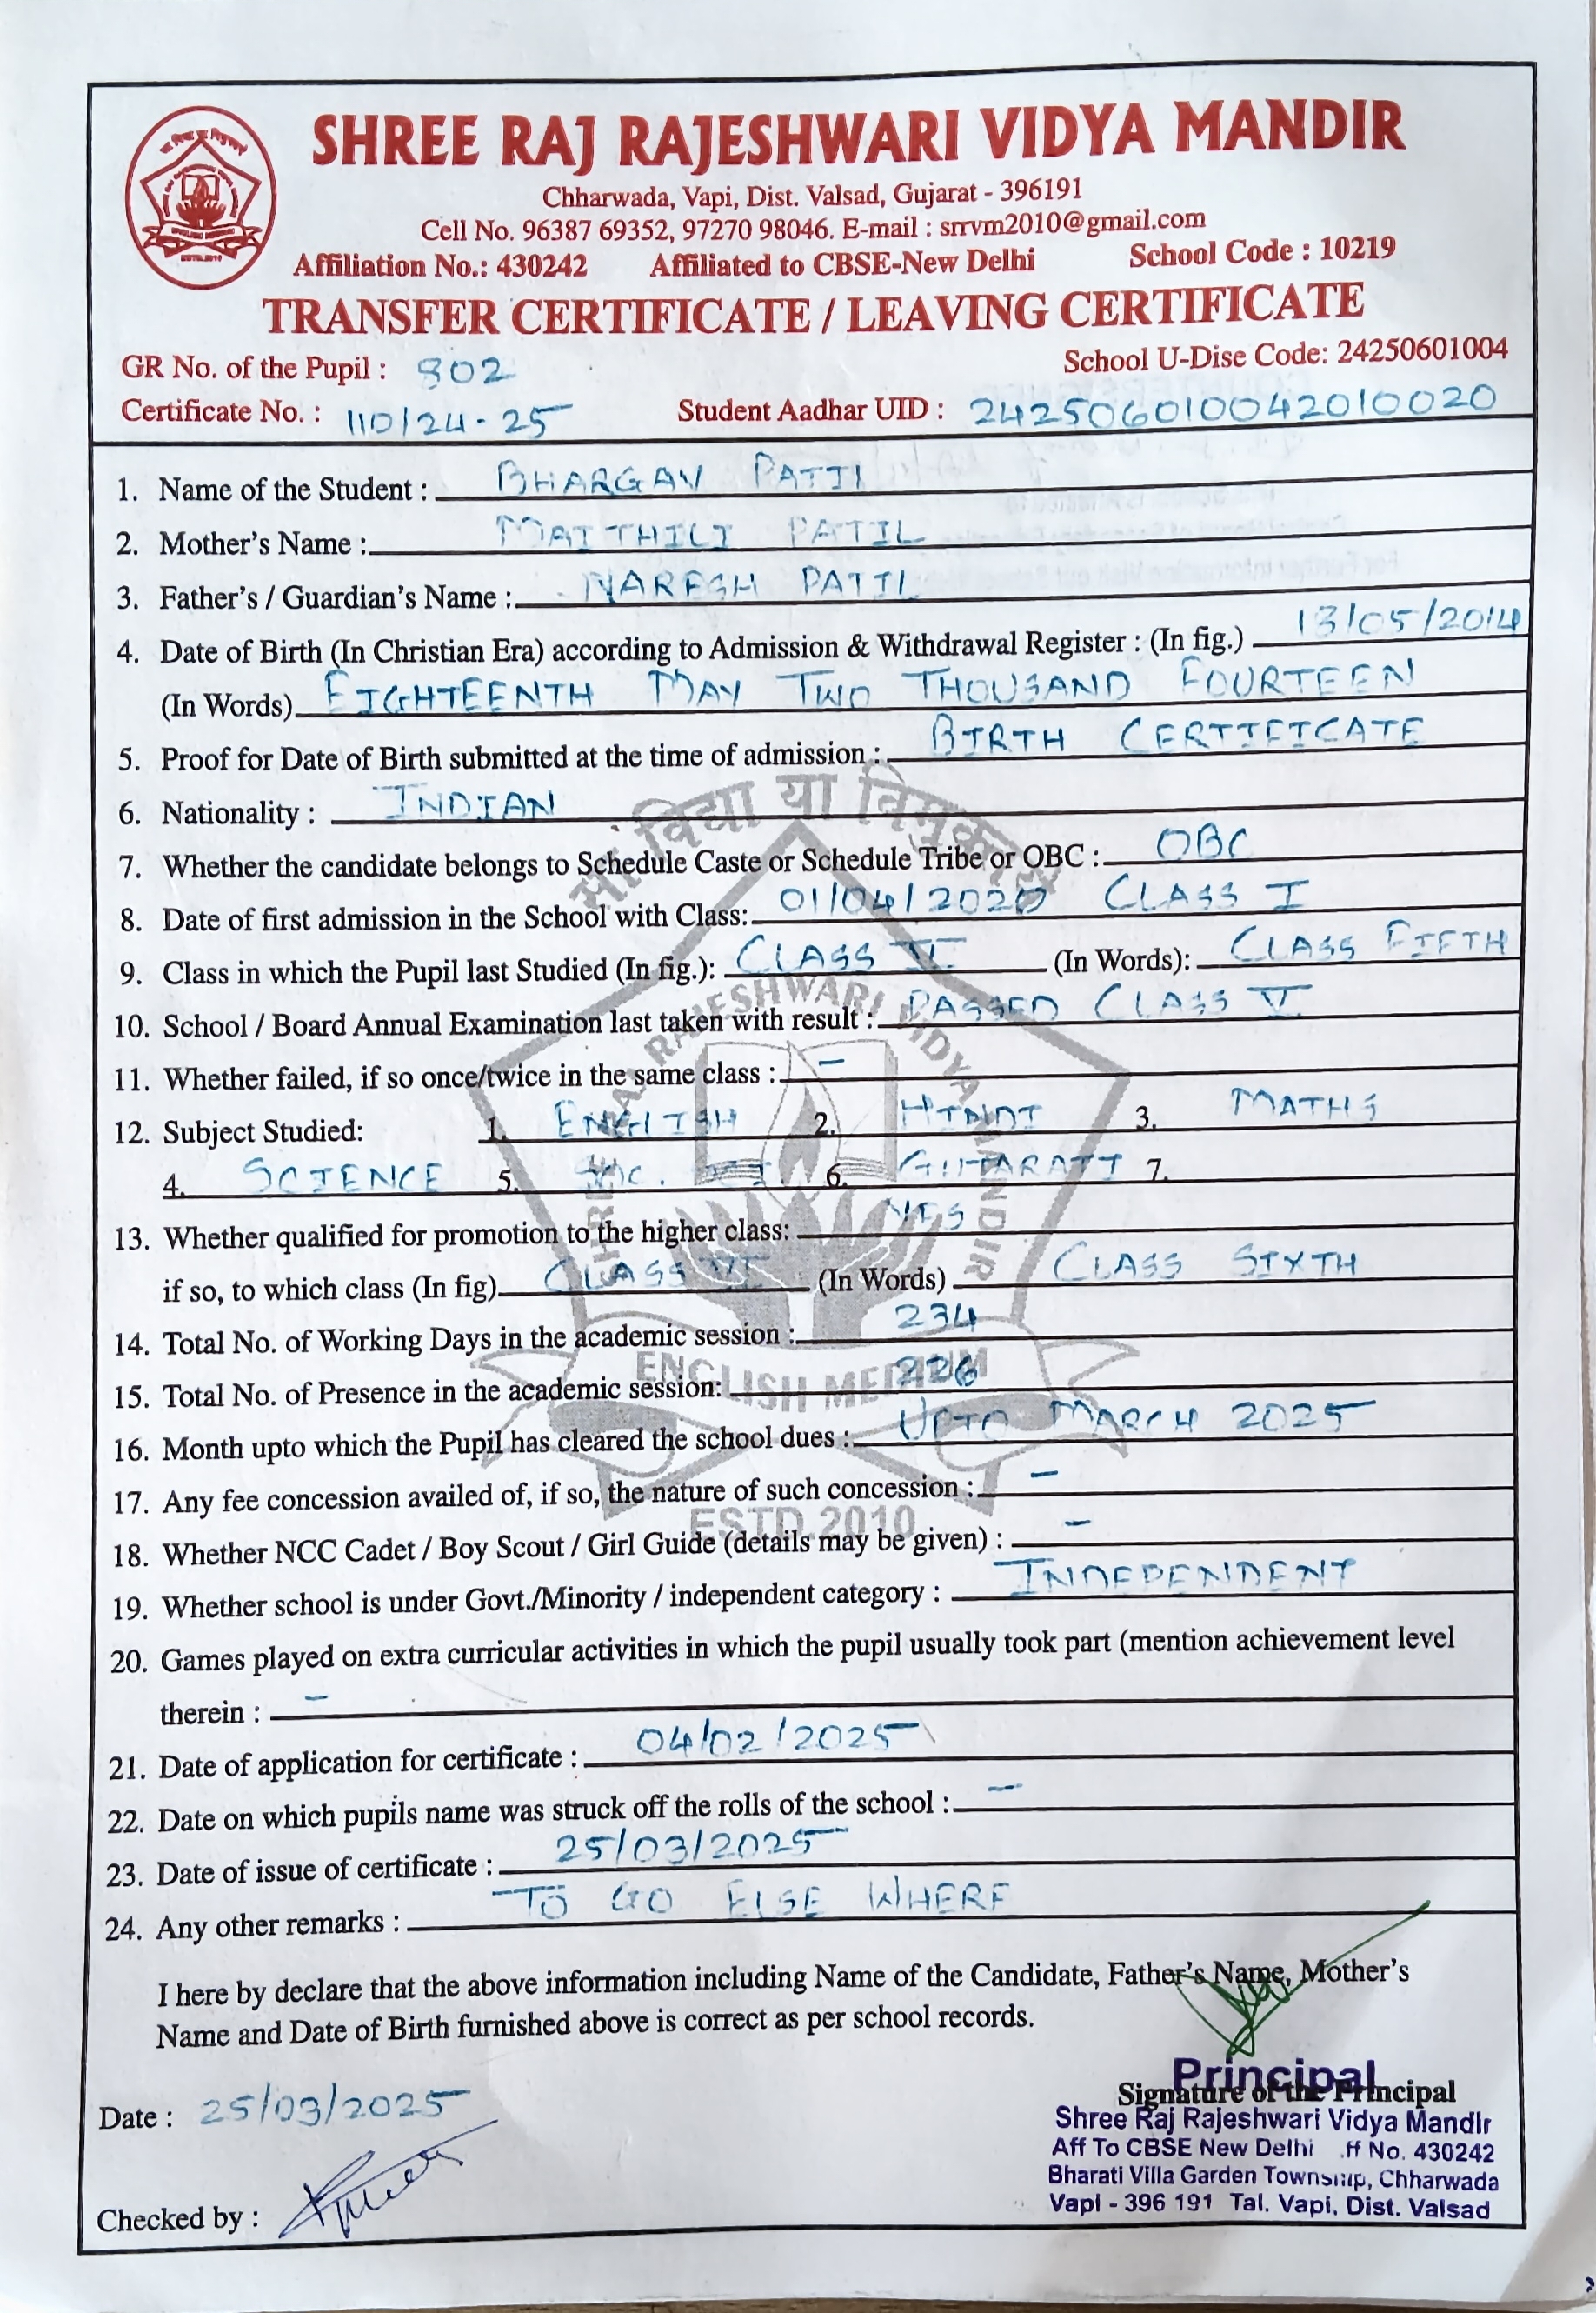 SHREE RAJ RAJESHWARI VIDYA MANDIR
Chharwada, Vapi, Dist. Valsad, Gujarat - 396191
Cell No. 96387 69352, 97270 98046. E-mail : srrvm2010@gmail.com
Affiliation No.: 430242 Affiliated to CBSE-New Delhi School Code : 10219
TRANSFER CERTIFICATE / LEAVING CERTIFICATE
GR No. of the Pupil : 802 School U-Dise Code: 24250601004
Certificate No. : 110/24-25 Student Aadhar UID : 242506010042010020
1. Name of the Student : BHARGAV PATIL
2. Mother's Name : MAITHILI PATIL
3. Father's / Guardian's Name : NARESH PATIL
4. Date of Birth (In Christian Era) according to Admission & Withdrawal Register : (In fig.) 13/05/2014
(In Words) EIGHTEENTH MAY TWO THOUSAND FOURTEEN
5. Proof for Date of Birth submitted at the time of admission : BIRTH CERTIFICATE
6. Nationality : INDIAN
7. Whether the candidate belongs to Schedule Caste or Schedule Tribe or OBC : OBC
8. Date of first admission in the School with Class: 01/04/2020 CLASS I
9. Class in which the Pupil last Studied (In fig.): CLASS V (In Words): CLASS FIFTH
10. School / Board Annual Examination last taken with result : PASSED CLASS V
11. Whether failed, if so once/twice in the same class : -
12. Subject Studied: 1. ENGLISH 2. HINDI 3. MATHS
4. SCIENCE 5. SOC. SCI 6. GUJARATI 7.
13. Whether qualified for promotion to the higher class: YES
if so, to which class (In fig) CLASS VI (In Words) CLASS SIXTH
14. Total No. of Working Days in the academic session : 234
15. Total No. of Presence in the academic session: 226
16. Month upto which the Pupil has cleared the school dues : UPTO MARCH 2025
17. Any fee concession availed of, if so, the nature of such concession : -
18. Whether NCC Cadet / Boy Scout / Girl Guide (details may be given) : -
19. Whether school is under Govt./Minority / independent category : INDEPENDENT
20. Games played on extra curricular activities in which the pupil usually took part (mention achievement level
therein : -
21. Date of application for certificate : 04/02/2025
22. Date on which pupils name was struck off the rolls of the school : -
23. Date of issue of certificate : 25/03/2025
24. Any other remarks : TO GO ELSE WHERE
I here by declare that the above information including Name of the Candidate, Father's Name, Mother's
Name and Date of Birth furnished above is correct as per school records.
Principal
Signature of the Principal
Shree Raj Rajeshwari Vidya Mandir
Aff To CBSE New Delhi ff No. 430242
Bharati Villa Garden Township, Chharwada
Vapi - 396 191 Tal. Vapi, Dist. Valsad
Date : 25/03/2025
Checked by :
सा विद्या या विमुक्तये
SHREE RAJ RAJESHWARI VIDYA MANDIR
ENGLISH MEDIUM
ESTD. 2010